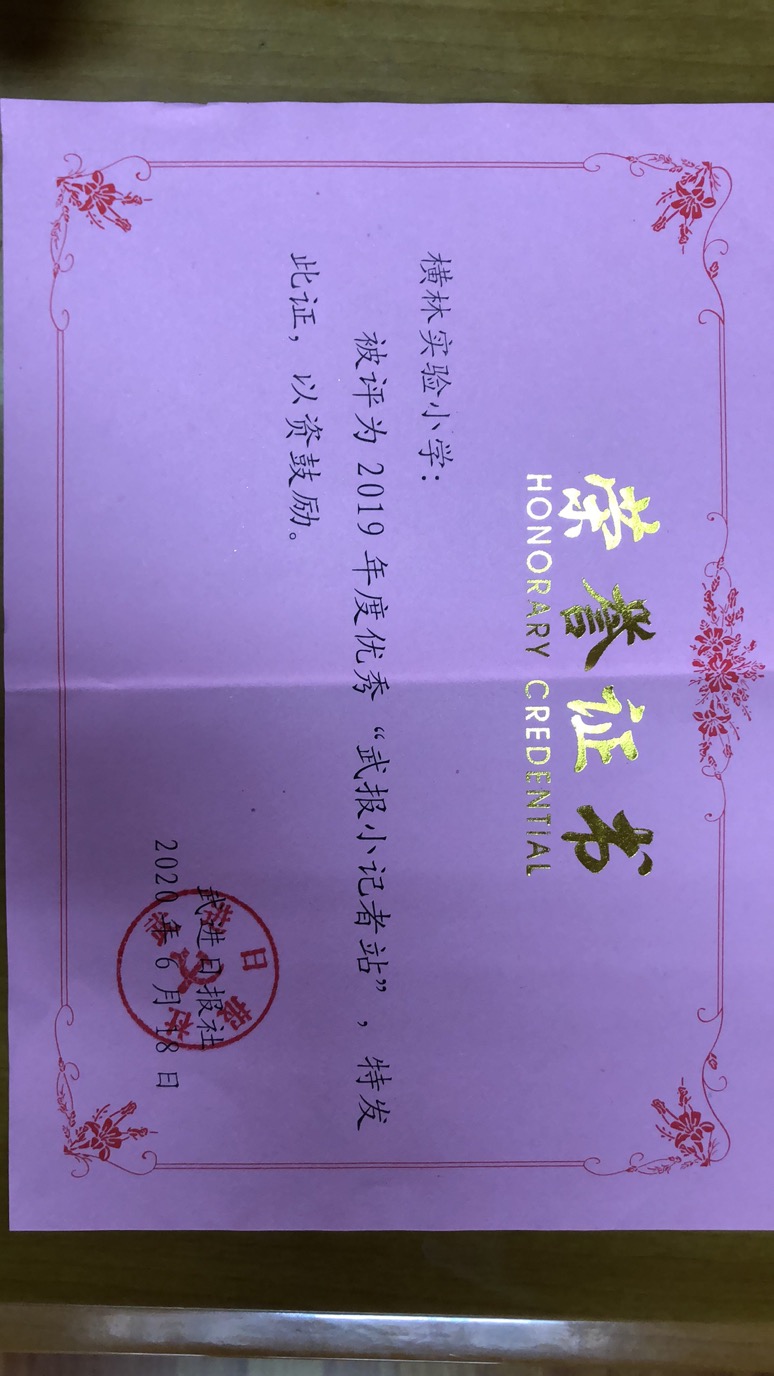 荣誉证书
HONORARY CREDENTIAL
横林实验小学：
被评为 2019 年度优秀“武报小记者站”，特发
此证，以资鼓励。
武进日报社
2020 年 6 月 18 日
武进日报社